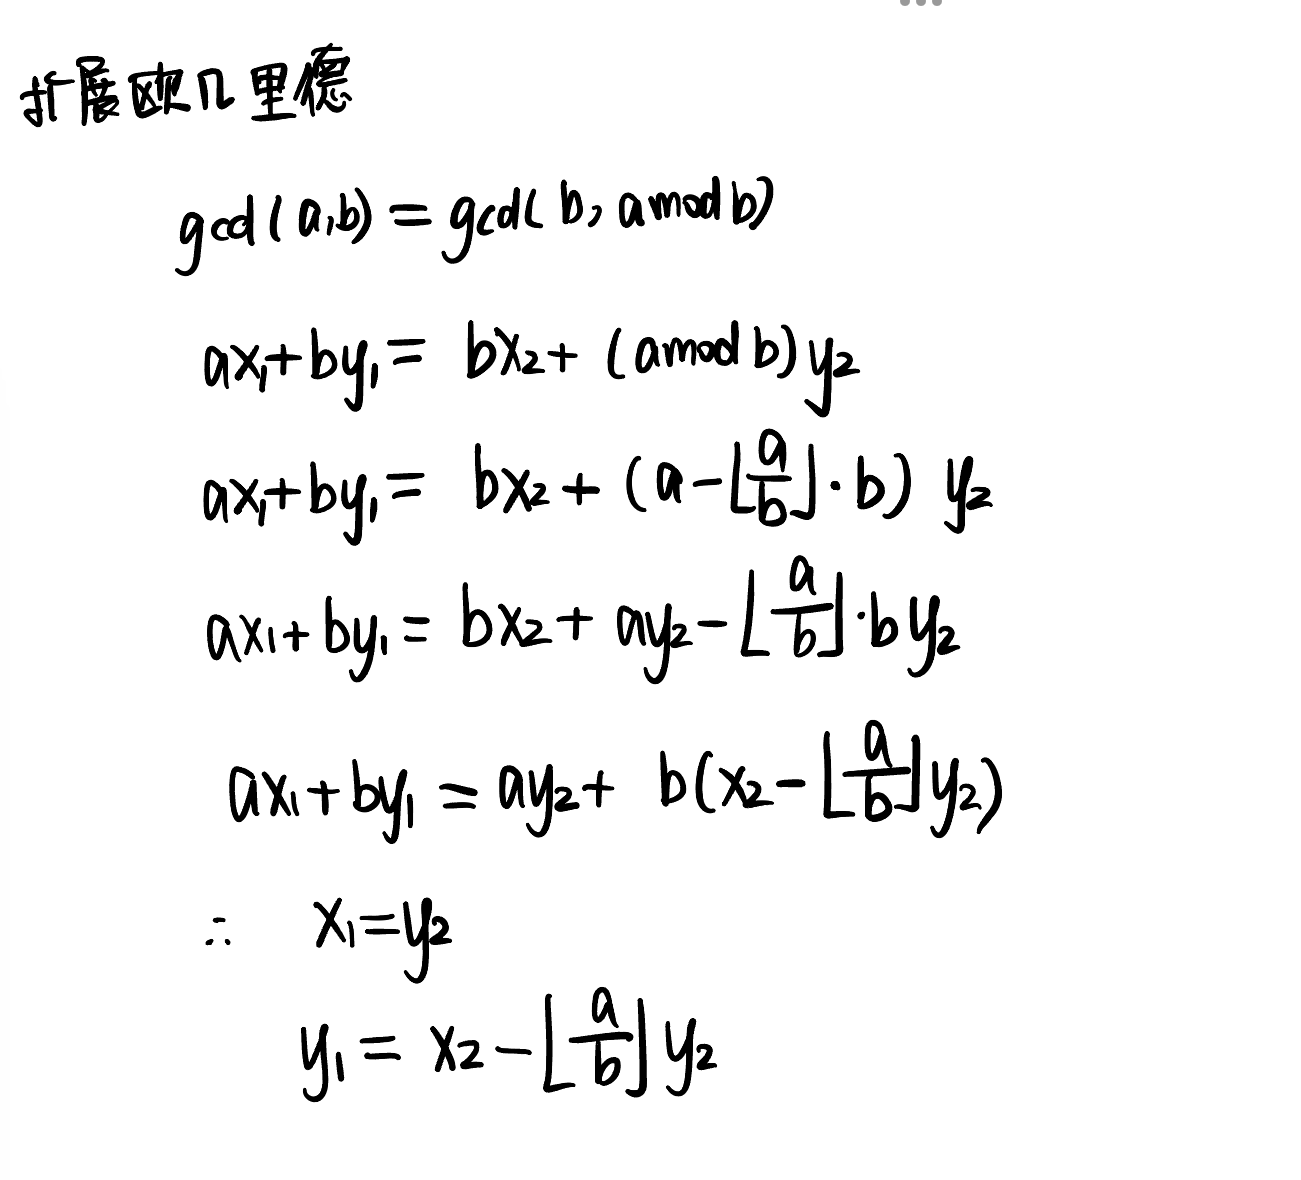 扩展欧几里德
gcd(a,b) = gcd(b, a mod b)
ax₁+by₁ = bx₂ + (a mod b)y₂
ax₁+by₁ = bx₂ + (a-⌊a/b⌋·b) y₂
ax₁+by₁ = bx₂ + ay₂ - ⌊a/b⌋·by₂
ax₁+by₁ = ay₂ + b(x₂-⌊a/b⌋y₂)
∴ x₁=y₂
y₁ = x₂-⌊a/b⌋y₂